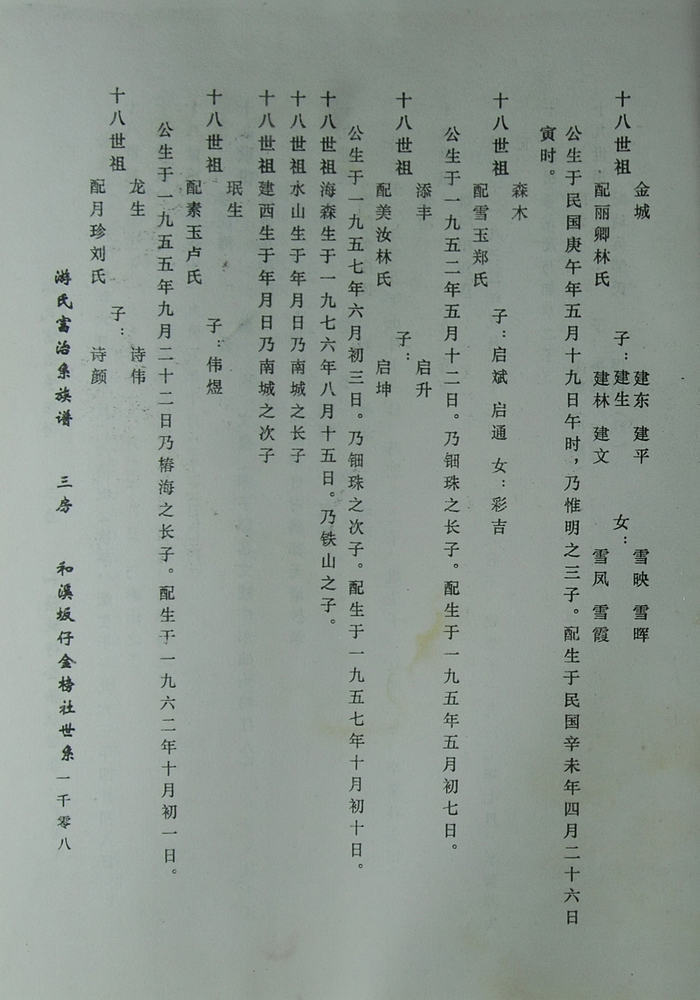 十八世祖
金城
配丽卿林氏
子：建生
建东 建平
建林 建文
女：
雪映 雪晖
雪凤 雪霞
公生于民国庚午年五月十九日午时，乃惟明之三子。配生于民国辛未年四月二十六日
寅时。
十八世祖
森木
配雪玉郑氏
子：启斌 启通 女：彩吉
公生于一九五二年五月十二日。乃钿珠之长子。配生于一九五年五月初七日。
十八世祖
添丰
配美汝林氏
子：
启升
启坤
公生于一九五七年六月初三日。乃钿珠之次子。配生于一九五七年十月初十日。
十八世祖海森生于一九七六年八月十五日。乃铁山之子。
十八世祖水山生于年月日乃南城之长子
十八世祖建西生于年月日乃南城之次子
十八世祖
珉生
配素玉卢氏
子：伟煜
公生于一九五五年九月二十二日乃椿海之长子。配生于一九六二年十月初一日。
十八世祖
龙生
配月珍刘氏
子：
诗伟
诗颜
游氏富治系族谱 三房 和溪坂仔金榜社世系 一千零八